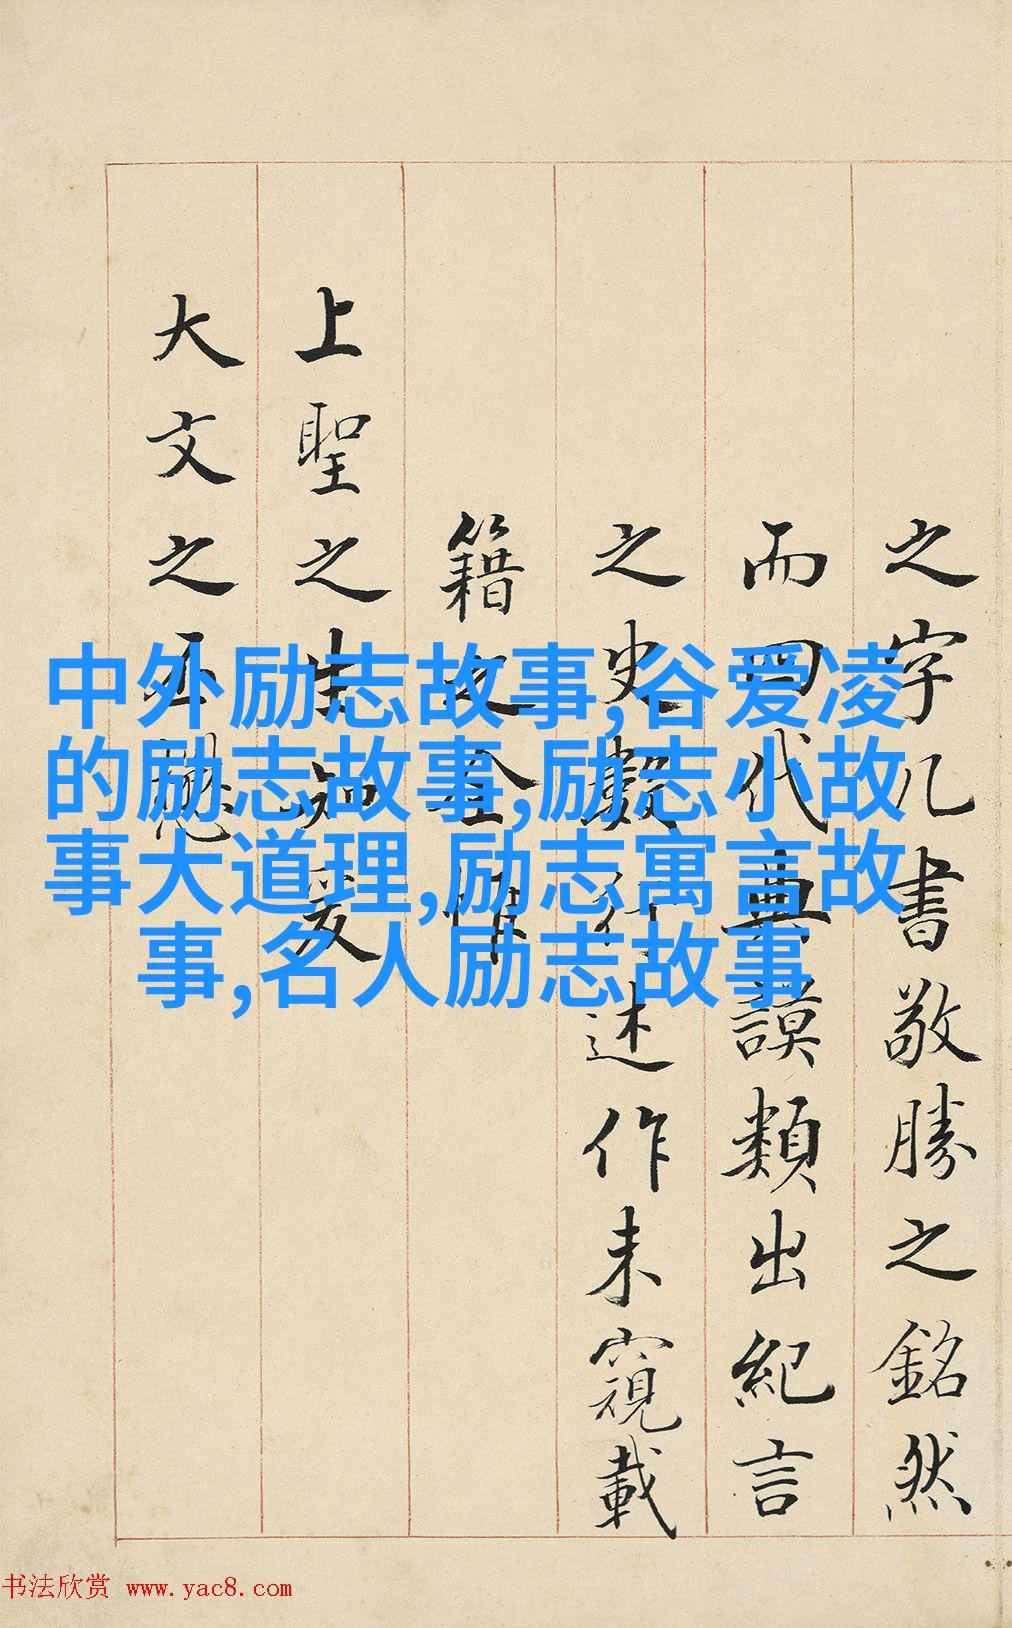 之字几書敬勝之銘然
而四代典謨類出紀言
之史數行述作未窺載
籍之全惟
上聖之生知爰
大文之丕懋
中外励志故事,谷爱凌
的励志故事,励志小故
事大道理,励志寓言故
事,名人励志故事
书法欣赏 www.yac8.com